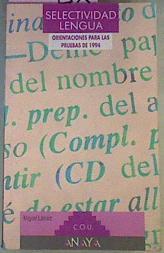 SELECTIVIDAD
LENGUA
ORIENTACIONES PARA LAS
PRUEBAS DE 1994
—Deme
del nombre
l. prep. del a
so (Compl. p
ntir (CD de
é de estar all
Miguel
C.O.U.
ANAYA